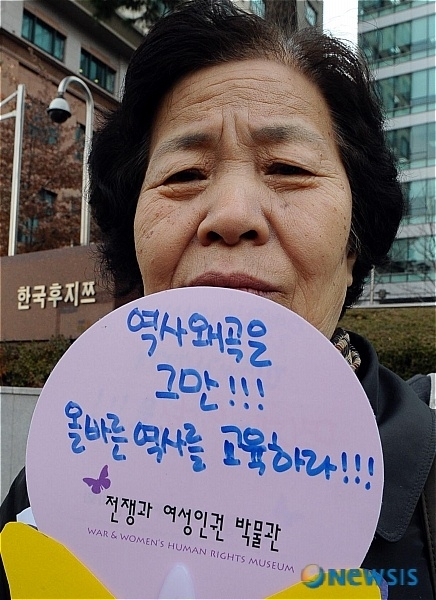 한국후지쯔
역사왜곡을
그만!!!
올바른 역사를 교육하라!!!
전쟁과 여성인권 박물관
WAR & WOMEN'S HUMAN RIGHTS MUSEUM
NEWSIS